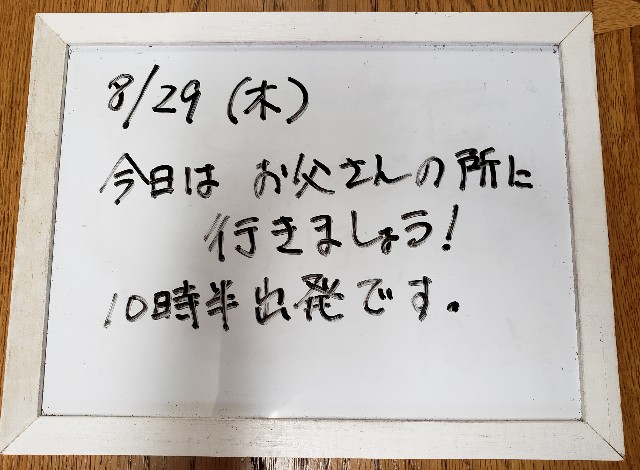 8/29 (木)
今日は お父さんの所に
行きましょう!
10時半出発です。